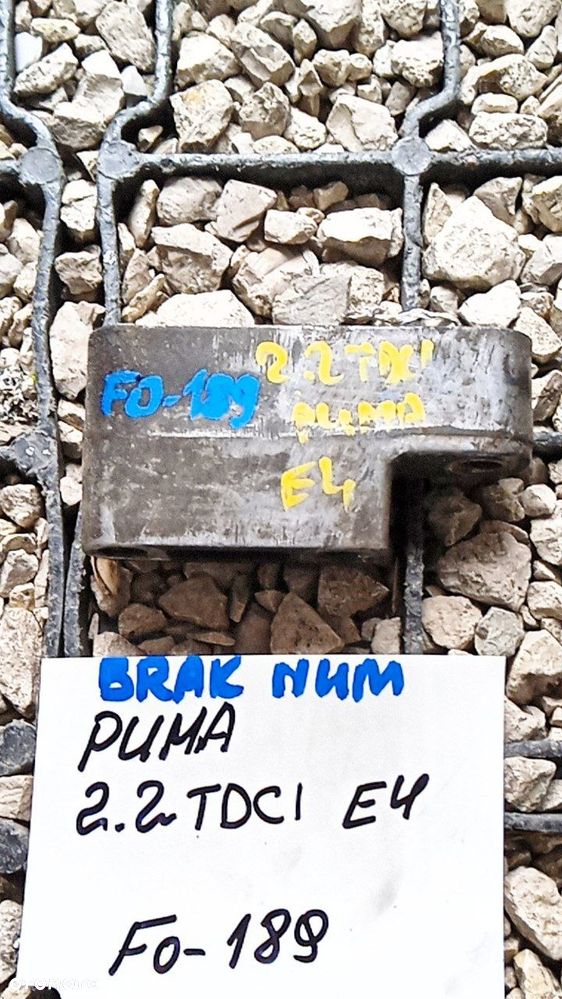 FO-189
2.2 TDCI
PUMA
E4
BRAK NUM
PUMA
2.2 TDCI E4
FO-189